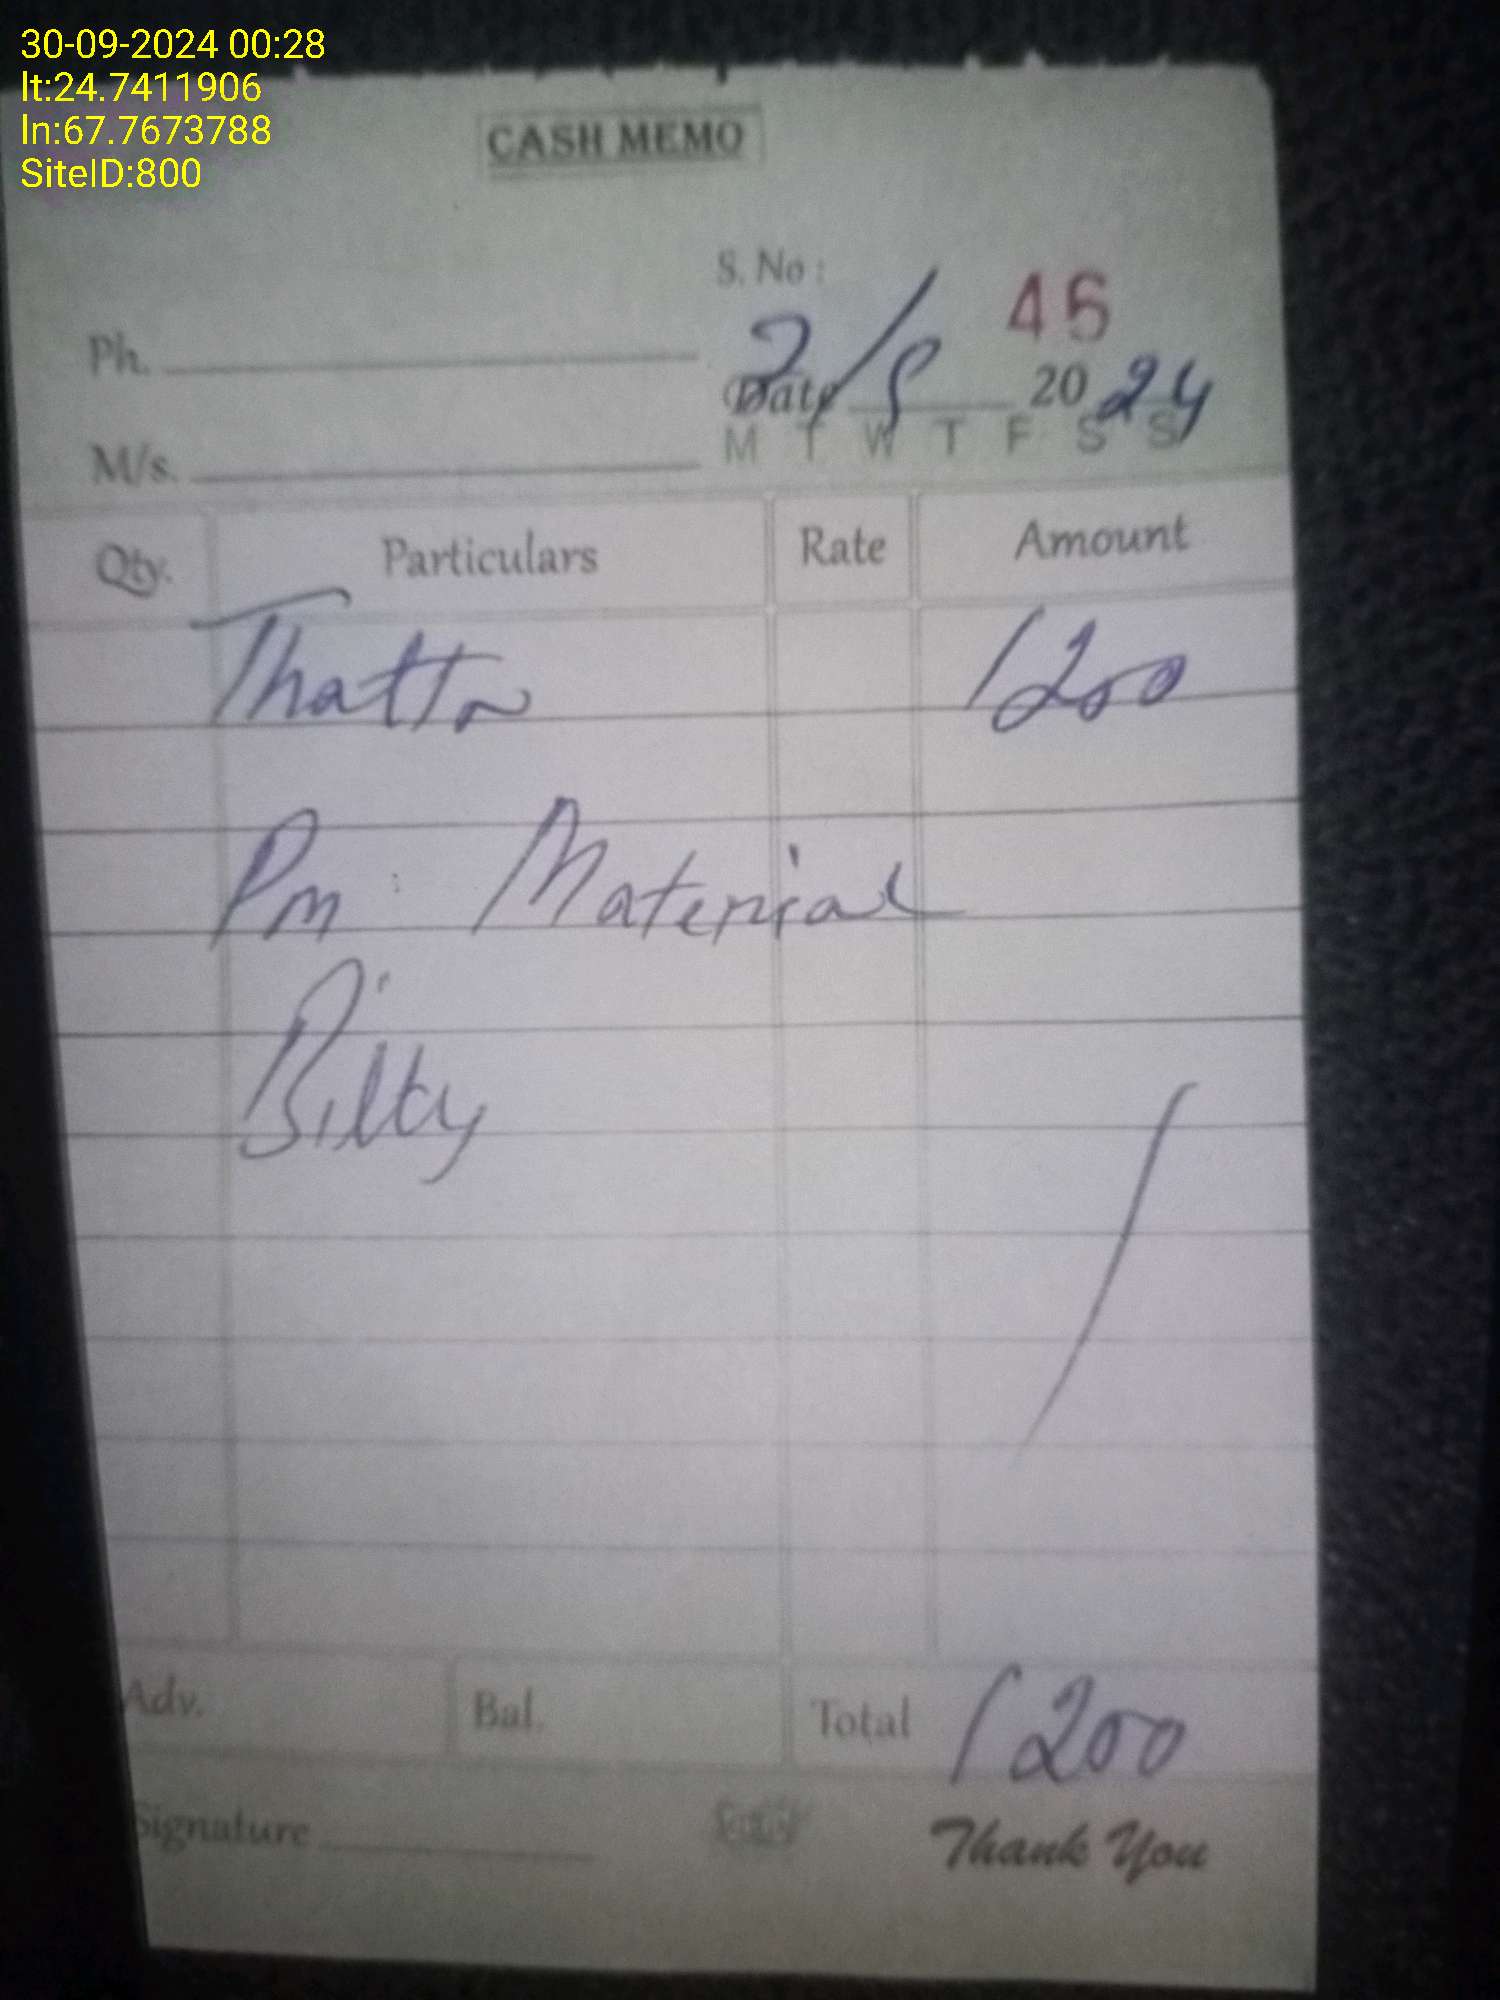 30-09-2024 00:28
lt:24.7411906
ln:67.7673788
SiteID:800
CASH MEMO
S. No : 45
Ph.
Date 2/9 2024
M T W T F S S
M/s.
Qty. Particulars Rate Amount
Thatta 1200
Pm Material
Bilty
Adv. Bal. Total 1200
Signature
Thank You